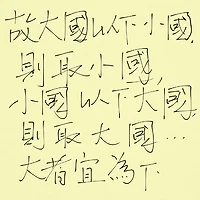 故大國以下小國,
則取小國,
小國以下大國,
則取大國…
大者宜為下